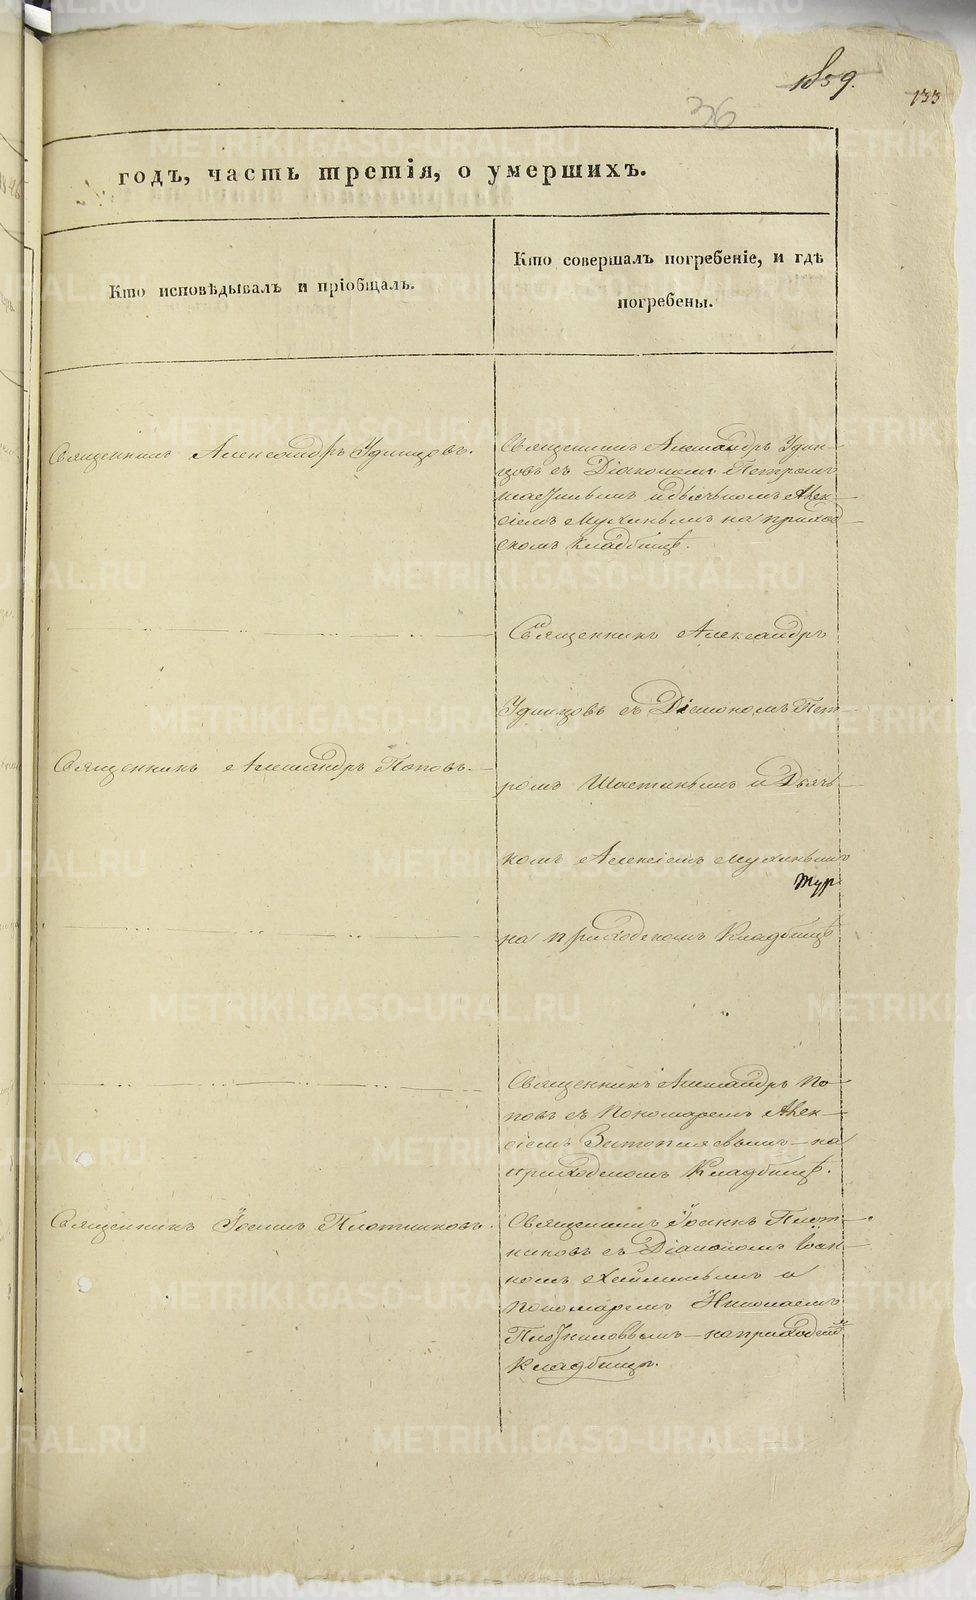 1859.
133
36
годъ, часть третія, о умершихъ.
Кто исповѣдывалъ и пріобщалъ.
Кто совершалъ погребеніе, и гдѣ
погребены.
Священникъ Александръ Удинцовъ.
Священникъ Александръ Удин-
цовъ съ Діакономъ Петромъ
Шастинымъ и дьячькомъ Алек-
сіемъ Мухинымъ на приход-
скомъ кладбищѣ.
Священникъ Александръ
Удинцовъ съ Діакономъ Пет-
Священникъ Александръ Поповъ.
ромъ Шастинымъ и Дьячь-
комъ Алексіемъ Мухинымъ
на приходскомъ Кладбищѣ
Священникъ Александръ По-
повъ съ Пономаремъ Алек-
сіемъ на
приходскомъ Кладбищѣ.
Священникъ Іоаннъ Плотниковъ.
Священникъ Іоаннъ Плот-
никовъ съ Діакономъ Іоан-
номъ и
Пономаремъ Николаемъ
Плотниковымъ на приходском
Кладбищѣ.